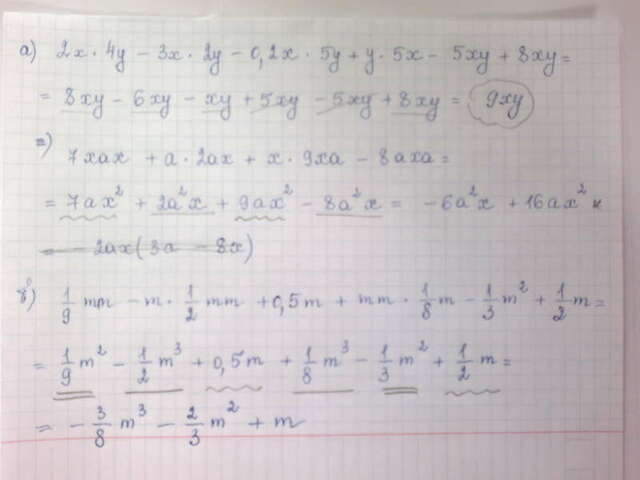 а) 2x · 4y − 3x · 2y − 0,2x · 5y + y · 5x − 5xy + 8xy =
= 8xy − 6xy − xy + 5xy − 5xy + 8xy = 9xy
) 7xax + a · 2ax + x · 9xa − 8axa =
= 7ax² + 2a²x + 9ax² − 8a²x = −6a²x + 16ax²
= − 2ax(3a − 8x)
в) 1/9 mm − m · 1/2 mm + 0,5m + mm · 1/8 m − 1/3 m² + 1/2 m =
= 1/9 m² − 1/2 m³ + 0,5m + 1/8 m³ − 1/3 m² + 1/2 m =
= − 3/8 m³ − 2/3 m² + m